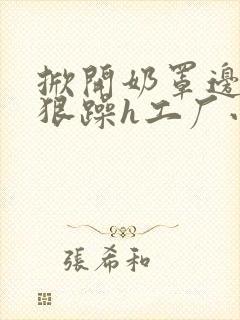 掀開奶罩邊
狠躁h工厂
張希和